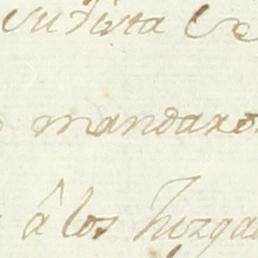 su vista
mandaro
â los Juzga